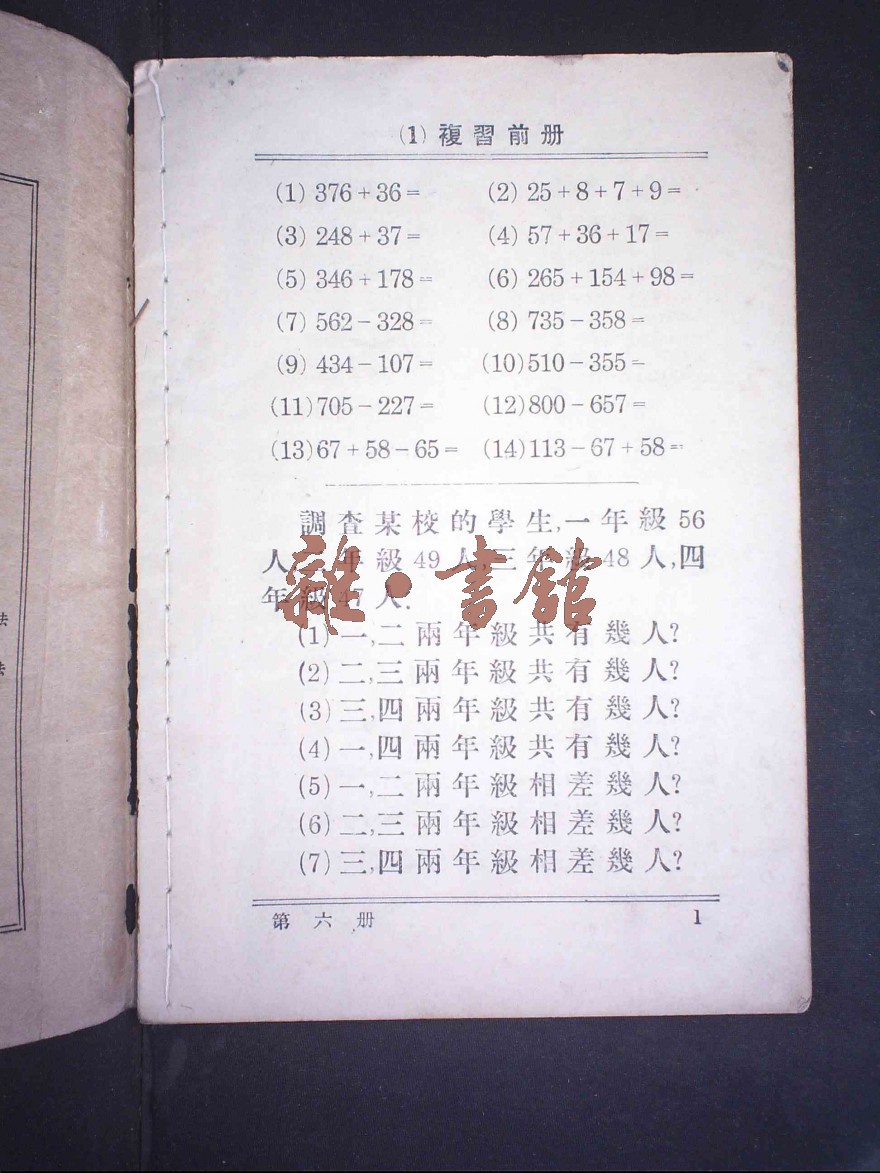 (1) 複習前册
(1) 376+36= (2) 25+8+7+9=
(3) 248+37= (4) 57+36+17=
(5) 346+178= (6) 265+154+98=
(7) 562-328= (8) 735-358=
(9) 434-107= (10)510-355=
(11)705-227= (12)800-657=
(13)67+58-65= (14)113-67+58=
調查某校的學生,一年級56
人,二年級49人,三年級48人,四
年級47人.
(1)一,二兩年級共有幾人?
(2)二,三兩年級共有幾人?
(3)三,四兩年級共有幾人?
(4)一,四兩年級共有幾人?
(5)一,二兩年級相差幾人?
(6)二,三兩年級相差幾人?
(7)三,四兩年級相差幾人?
第六册 1
雜·書館
法
法